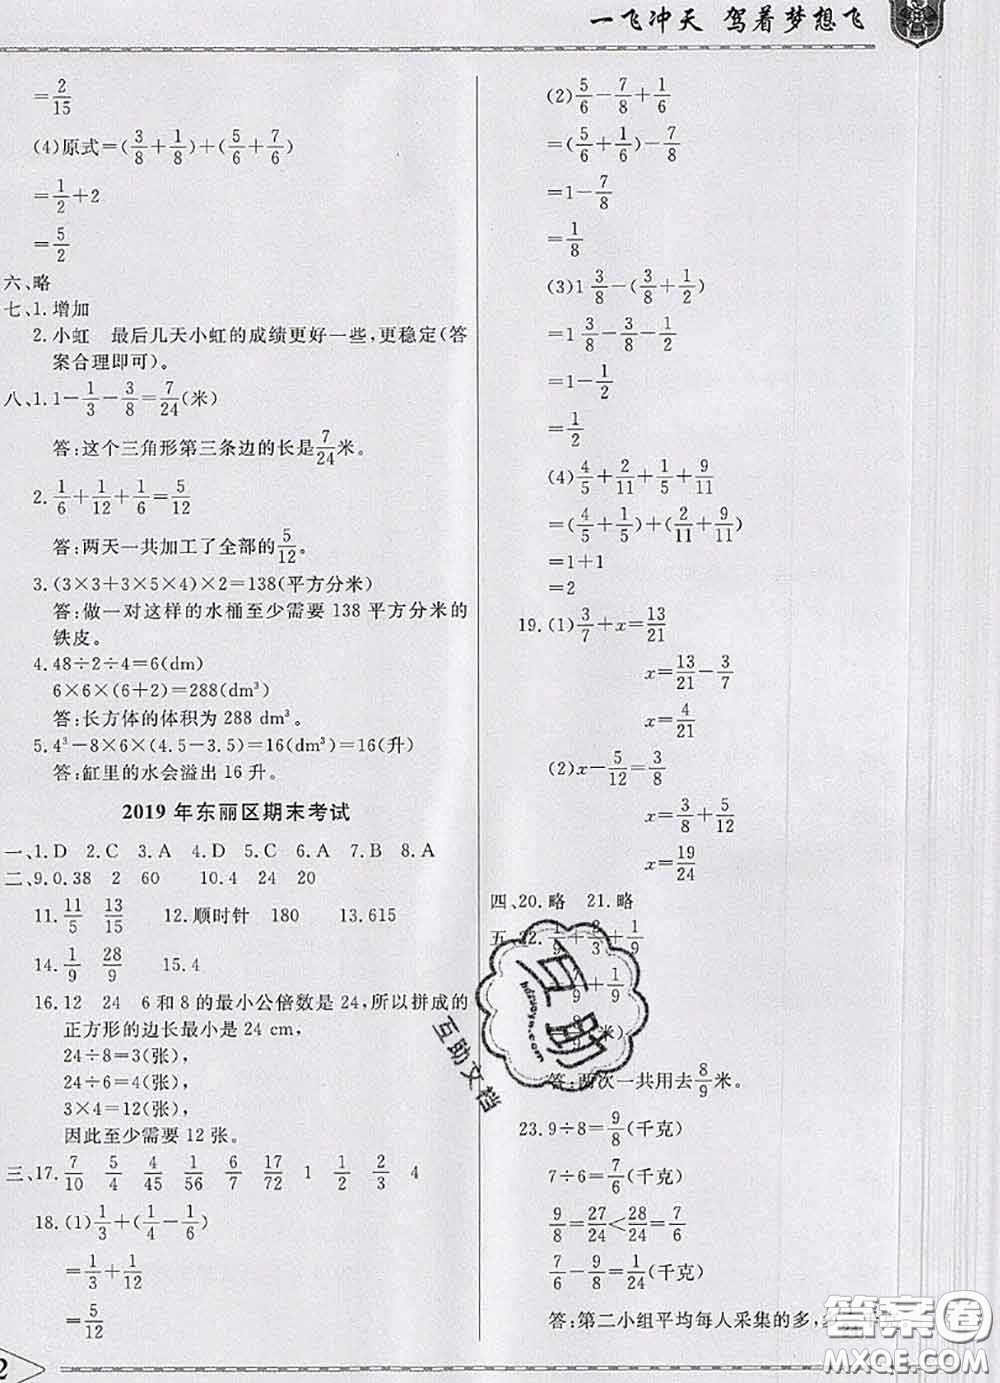 一飞冲天 驾着梦想飞
=2/15
(4)原式=(3/8+1/8)+(5/6+7/6)
=1/2+2
=5/2
六、略
七、1.增加
2.小虹 最后几天小虹的成绩更好一些,更稳定(答
案合理即可)。
八、1.1-1/3-3/8=7/24(米)
答:这个三角形第三条边的长是7/24米。
2.1/6+1/12+1/6=5/12
答:两天一共加工了全部的5/12。
3.(3×3+3×5×4)×2=138(平方分米)
答:做一对这样的水桶至少需要 138 平方分米的
铁皮。
4.48÷2÷4=6(dm)
6×6×(6+2)=288(dm³)
答:长方体的体积为 288 dm³。
5.4³-8×6×(4.5-3.5)=16(dm³)=16(升)
答:缸里的水会溢出 16 升。
2019 年东丽区期末考试
一、1.D 2.C 3.A 4.D 5.C 6.A 7.B 8.A
二、9.0.38 2 60 10.4 24 20
11.11/5 13/15 12.顺时针 180 13.615
14.1/9 28/9 15.4
16.12 24 6 和 8 的最小公倍数是 24,所以拼成的
正方形的边长最小是 24 cm,
24÷8=3(张),
24÷6=4(张),
3×4=12(张),
因此至少需要 12 张。
三、17.7/10 5/4 4/45 1/56 6/7 17/72 1 1/2 2/3 4
18.(1)1/3+(1/4-1/6)
=1/3+1/12
=5/12
2
(2)5/6-7/8+1/6
=(5/6+1/6)-7/8
=1-7/8
=1/8
(3)1 3/8-(3/8+1/2)
=1 3/8-3/8-1/2
=1-1/2
=1/2
(4)4/5+2/11+1/5+9/11
=(4/5+1/5)+(2/11+9/11)
=1+1
=2
19.(1)3/7+x=13/21
x=13/21-3/7
x=4/21
(2)x-5/12=3/8
x=3/8+5/12
x=19/24
四、20.略 21.略
五、22.1/9+2/3+1/9
7/9+1/9
8/9(米)
答:两次一共用去8/9米。
23.9÷8=9/8(千克)
7÷6=7/6(千克)
9/8=27/24<28/24=7/6
7/6-9/8=1/24(千克)
答:第二小组平均每人采集的多,
互助
hdzuoye.com
互助文档
答案圈
MXQE.COM